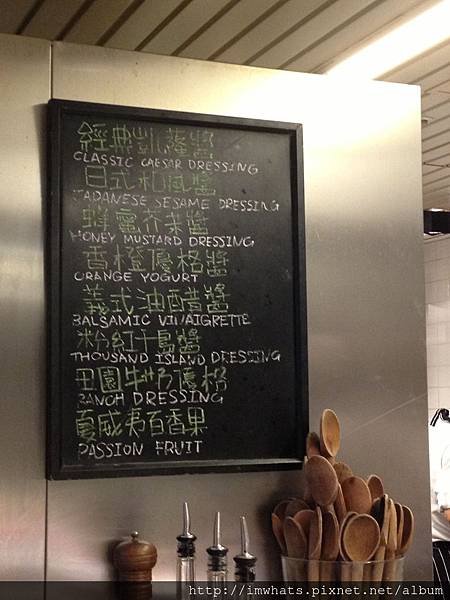 經典凱薩醬
CLASSIC CAESAR DRESSING
日式和風醬
JAPANESE SESAME DRESSING
蜂蜜芥茉醬
HONEY MUSTARD DRESSING
香橙優格醬
ORANGE YOGURT
義式油醋醬
BALSAMIC VINAIGRETTE
粉紅千島醬
THOUSAND ISLAND DRESSING
田園牛奶優格
RANCH DRESSING
夏威夷百香果
PASSION FRUIT
http://imwhats.pixnet.net/album